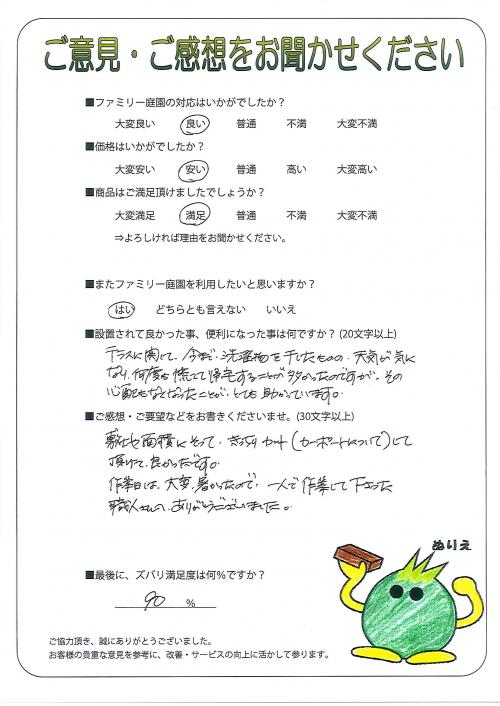 ご意見・ご感想をお聞かせください
■ファミリー庭園の対応はいかがでしたか？
大変良い 良い 普通 不満 大変不満
■価格はいかがでしたか？
大変安い 安い 普通 高い 大変高い
■商品はご満足頂けましたでしょうか？
大変満足 満足 普通 不満 大変不満
⇒よろしければ理由をお聞かせください。
■またファミリー庭園を利用したいと思いますか？
はい どちらとも言えない いいえ
■設置されて良かった事、便利になった事は何ですか？(20文字以上)
テラスに関して、今まで、洗濯物を干したものの、天気が気に
なり、何度も慌てて帰宅することが多かったのですが、その
心配もなくなったことが、とても助かっています。
■ご感想・ご要望などをお書きくださいませ。(30文字以上)
敷地面積にそって、きっちりカット(カーポートについて)して
頂けて、良かったです。
作業日は、大変、暑かったので、一人で作業して下さった
職人さんへ、ありがとうございました。
ぬりえ
■最後に、ズバリ満足度は何%ですか？
90 %
ご協力頂き、誠にありがとうございました。
お客様の貴重な意見を参考に、改善・サービスの向上に活かして参ります。